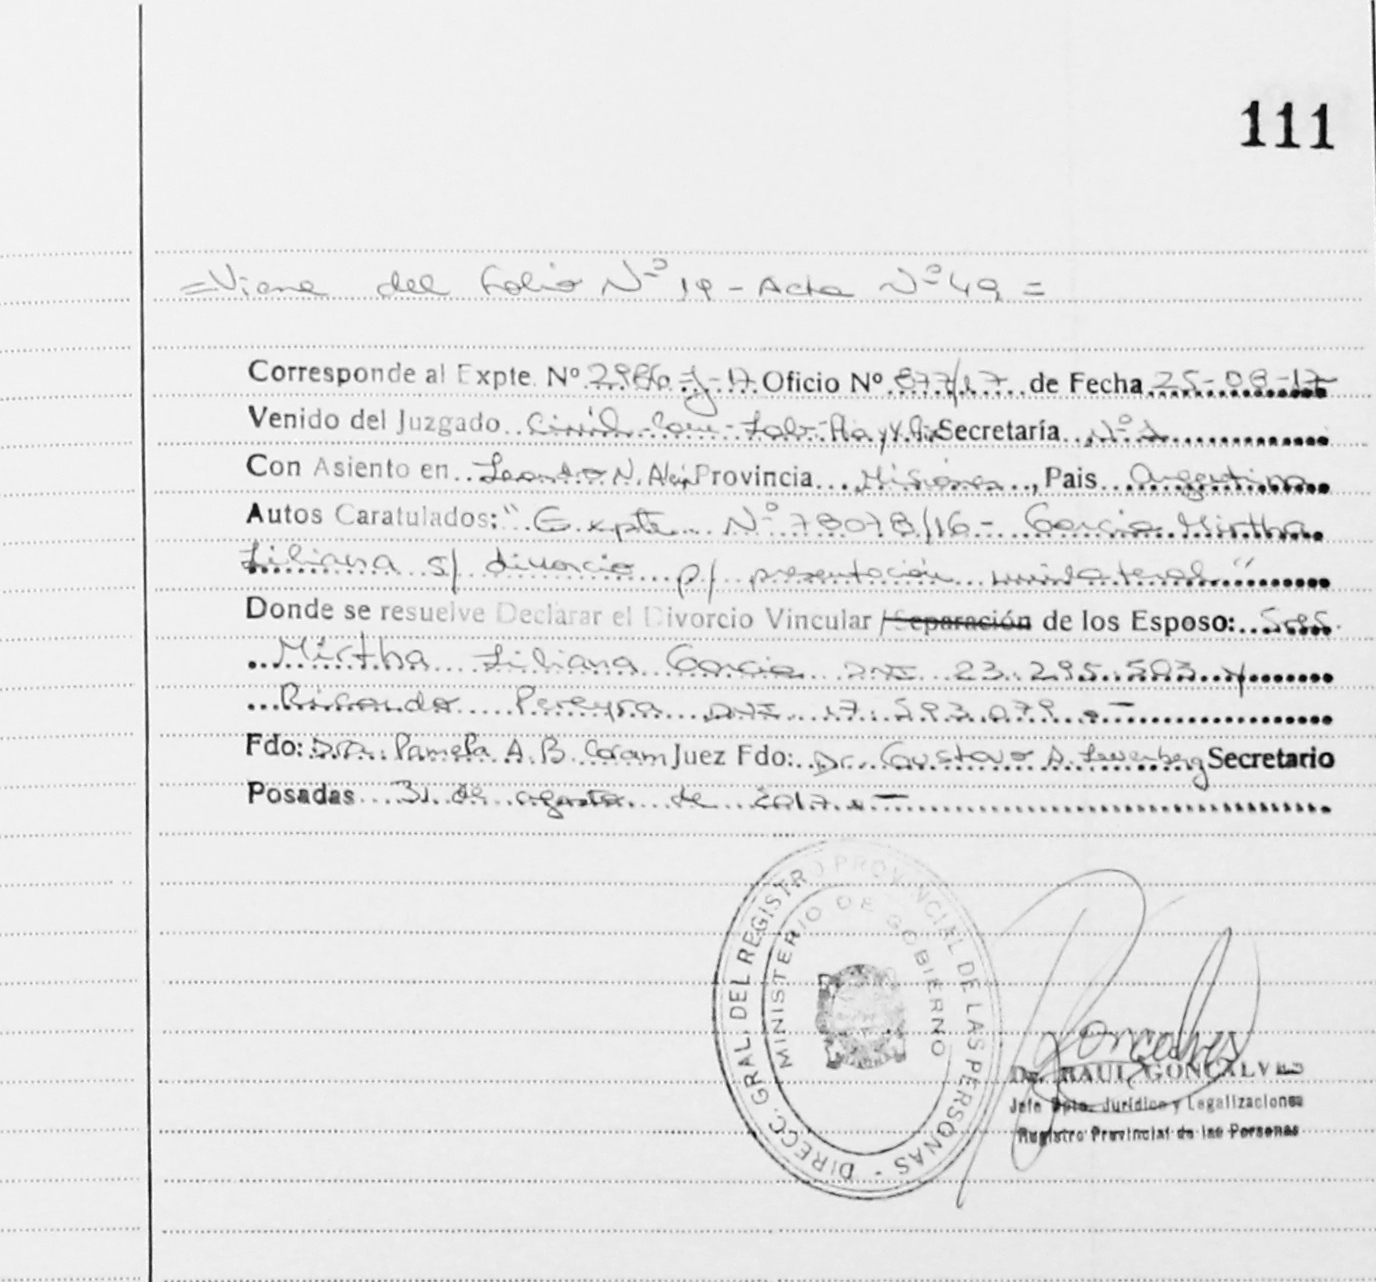 111
=Viene del Folio Nº 19 - Acta Nº 49 =
Corresponde al Expte. Nº 2986-J-17. Oficio Nº 877/17 de Fecha 25-08-17
Venido del Juzgado Civil-Com-Lab-Flia y V.F. Secretaría Nº 1
Con Asiento en Leandro N. Alem Provincia Misiones, Pais Argentina
Autos Caratulados: "Expte Nº 78078/16 - Garcia Mirtha
Liliana s/ divorcio p/ presentación unilateral"
Donde se resuelve Declarar el Divorcio Vincular /Separación de los Esposo: Sres.
Mirtha Liliana Garcia DNI 23.295.503 y
Ricardo Pereyra DNI 17.593.079.-
Fdo: Dra. Pamela A. B. Caram Juez Fdo: Dr. Gustavo A. Levenberg Secretario
Posadas 31 de agosto de 2017.-
DIRECC. GRAL. DEL REGISTRO PROVINCIAL DE LAS PERSONAS -
MINISTERIO DE GOBIERNO
Goncalves
Dr. RAUL GONCALVES
Jefe Dpto. Jurídico y Legalizaciones
Registro Provincial de las Personas